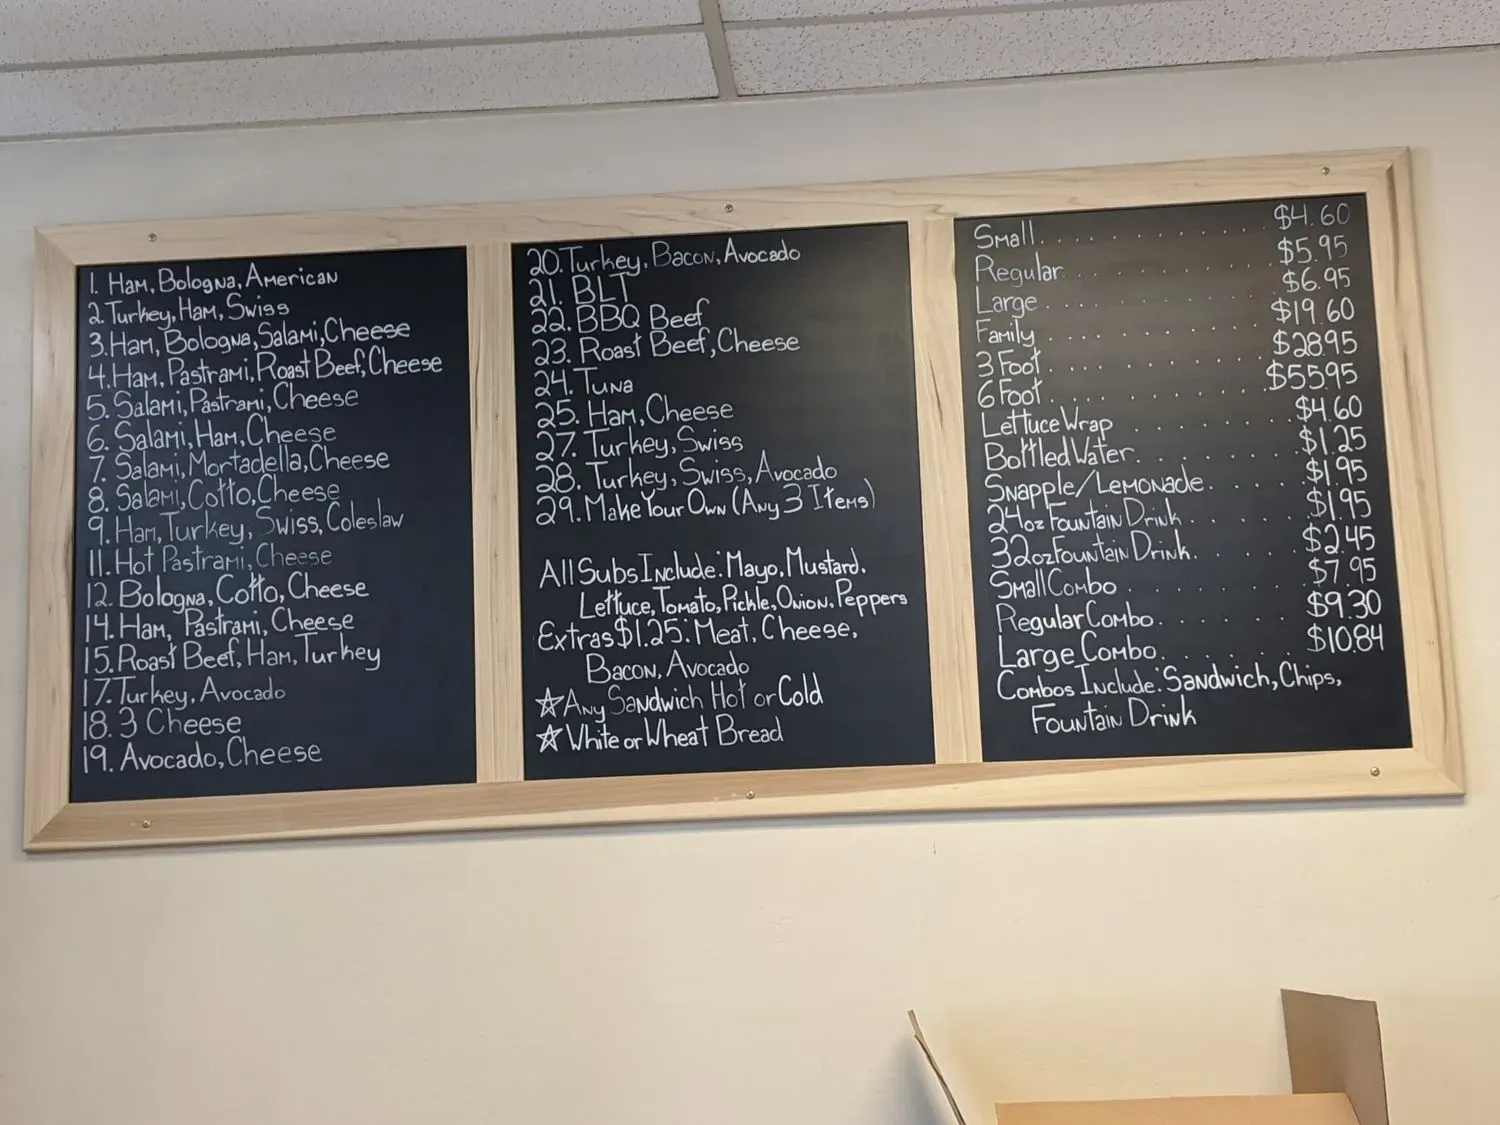 1. Ham, Bologna, American
2. Turkey, Ham, Swiss
3. Ham, Bologna, Salami, Cheese
4. Ham, Pastrami, Roast Beef, Cheese
5. Salami, Pastrami, Cheese
6. Salami, Ham, Cheese
7. Salami, Mortadella, Cheese
8. Salami, Cotto, Cheese
9. Ham, Turkey, Swiss, Coleslaw
11. Hot Pastrami, Cheese
12. Bologna, Cotto, Cheese
14. Ham, Pastrami, Cheese
15. Roast Beef, Ham, Turkey
17. Turkey, Avocado
18. 3 Cheese
19. Avocado, Cheese
20. Turkey, Bacon, Avocado
21. BLT
22. BBQ Beef
23. Roast Beef, Cheese
24. Tuna
25. Ham, Cheese
27. Turkey, Swiss
28. Turkey, Swiss, Avocado
29. Make Your Own (Any 3 Items)
All Subs Include: Mayo, Mustard,
Lettuce, Tomato, Pickle, Onion, Peppers
Extras $1.25: Meat, Cheese,
Bacon, Avocado
☆ Any Sandwich Hot or Cold
☆ White or Wheat Bread
Small . . . . . . . . . . $4.60
Regular . . . . . . . . . . $5.95
Large . . . . . . . . . . $6.95
Family . . . . . . . . . . $19.60
3 Foot . . . . . . . . . . $28.95
6 Foot . . . . . . . . . . $55.95
Lettuce Wrap . . . . . . . $4.60
Bottled Water . . . . . . . $1.25
Snapple/Lemonade . . . . $1.95
24oz Fountain Drink . . . . $1.95
32oz Fountain Drink . . . . $2.45
Small Combo . . . . . . . $7.95
Regular Combo . . . . . . $9.30
Large Combo . . . . . . . $10.84
Combos Include: Sandwich, Chips,
Fountain Drink